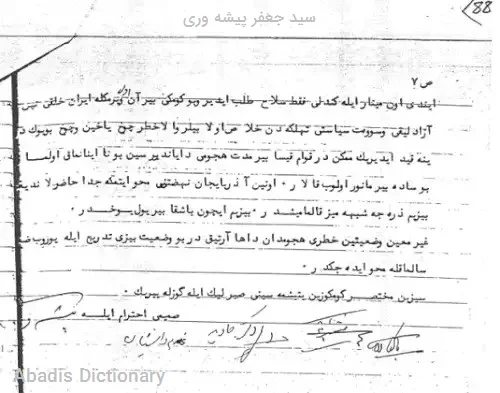 سید جعفر پیشه وری
88
ص ۷
ایندی اون مینلر ایله کندلی فقط سلاح طلب ایدیر و بو کومکی بیر آن ایران خلقی
آزادلیقی و سوویت سیاستی تهلکه دن خلاص اولا بیلر والا خطر چوخ یاخین وچوخ بویوک در
ینه قید ایدیریک ممکن در قوام قیسا بیر مدت هجومی دایاندیرسین بونا اینانماق اولماز
بو ساده بیر مانور اولوب قالار ۰ اونین آذربایجان نهضتنی محو ایتمکه جدا حاضرلاندیقی
بیزیم ذره جه شبهه میز قالمامیشدر ۰ بیزیم ایچون باشقا بیر یول یوخدر ۰
غیر معین وضعیتین خطری هجومدان داها آرتیق در بو وضعیت بیزی تدریج ایله یوروب
سالماقله محو ایده جکدر ۰
سیزین مختصر کومکوزین یتیشمه سینی صبرلیک ایله گوزله ییریک ۰
صمیمی احترام ایله
Abadis Dictionary